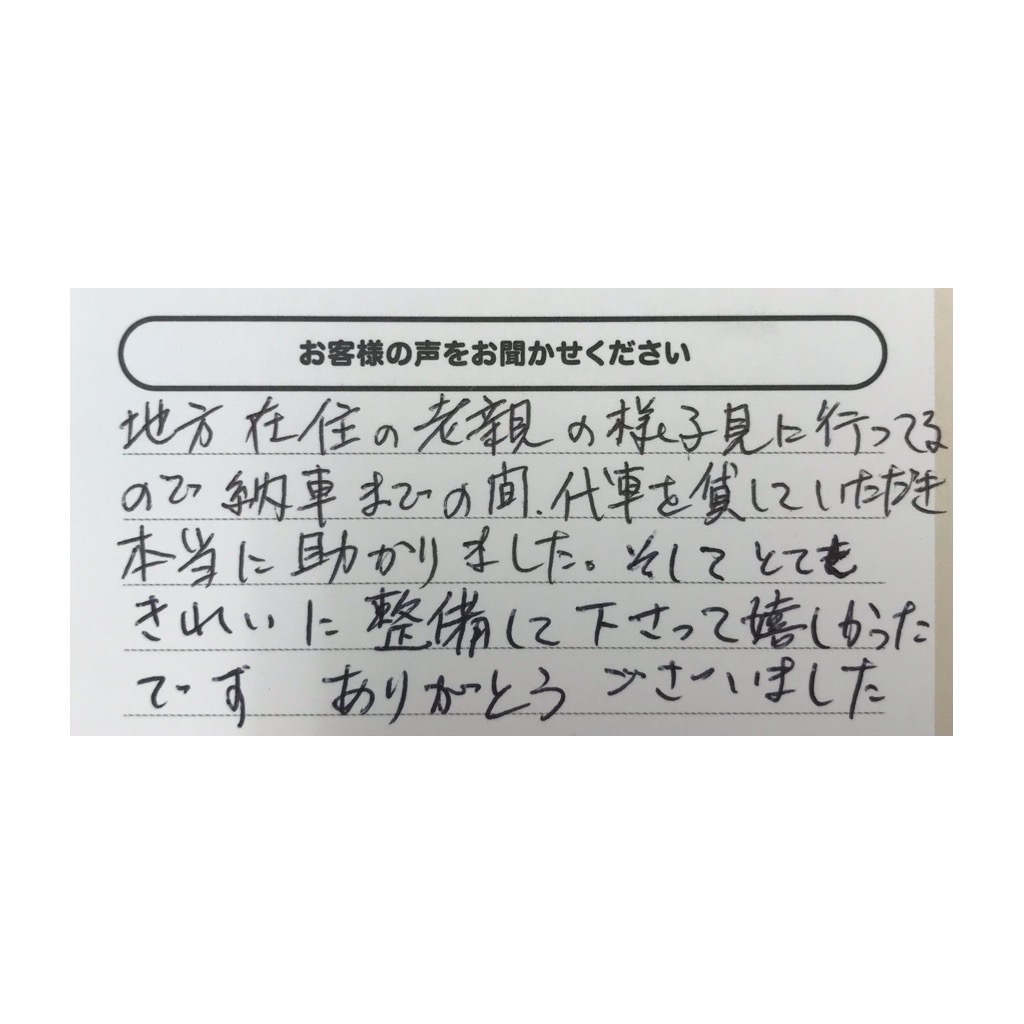 お客様の声をお聞かせください
地方在住の老親の様子見に行ってる
ので納車までの間、代車を貸していただき
本当に助かりました。そしてとても
きれいに整備して下さって嬉しかった
です ありがとうございました